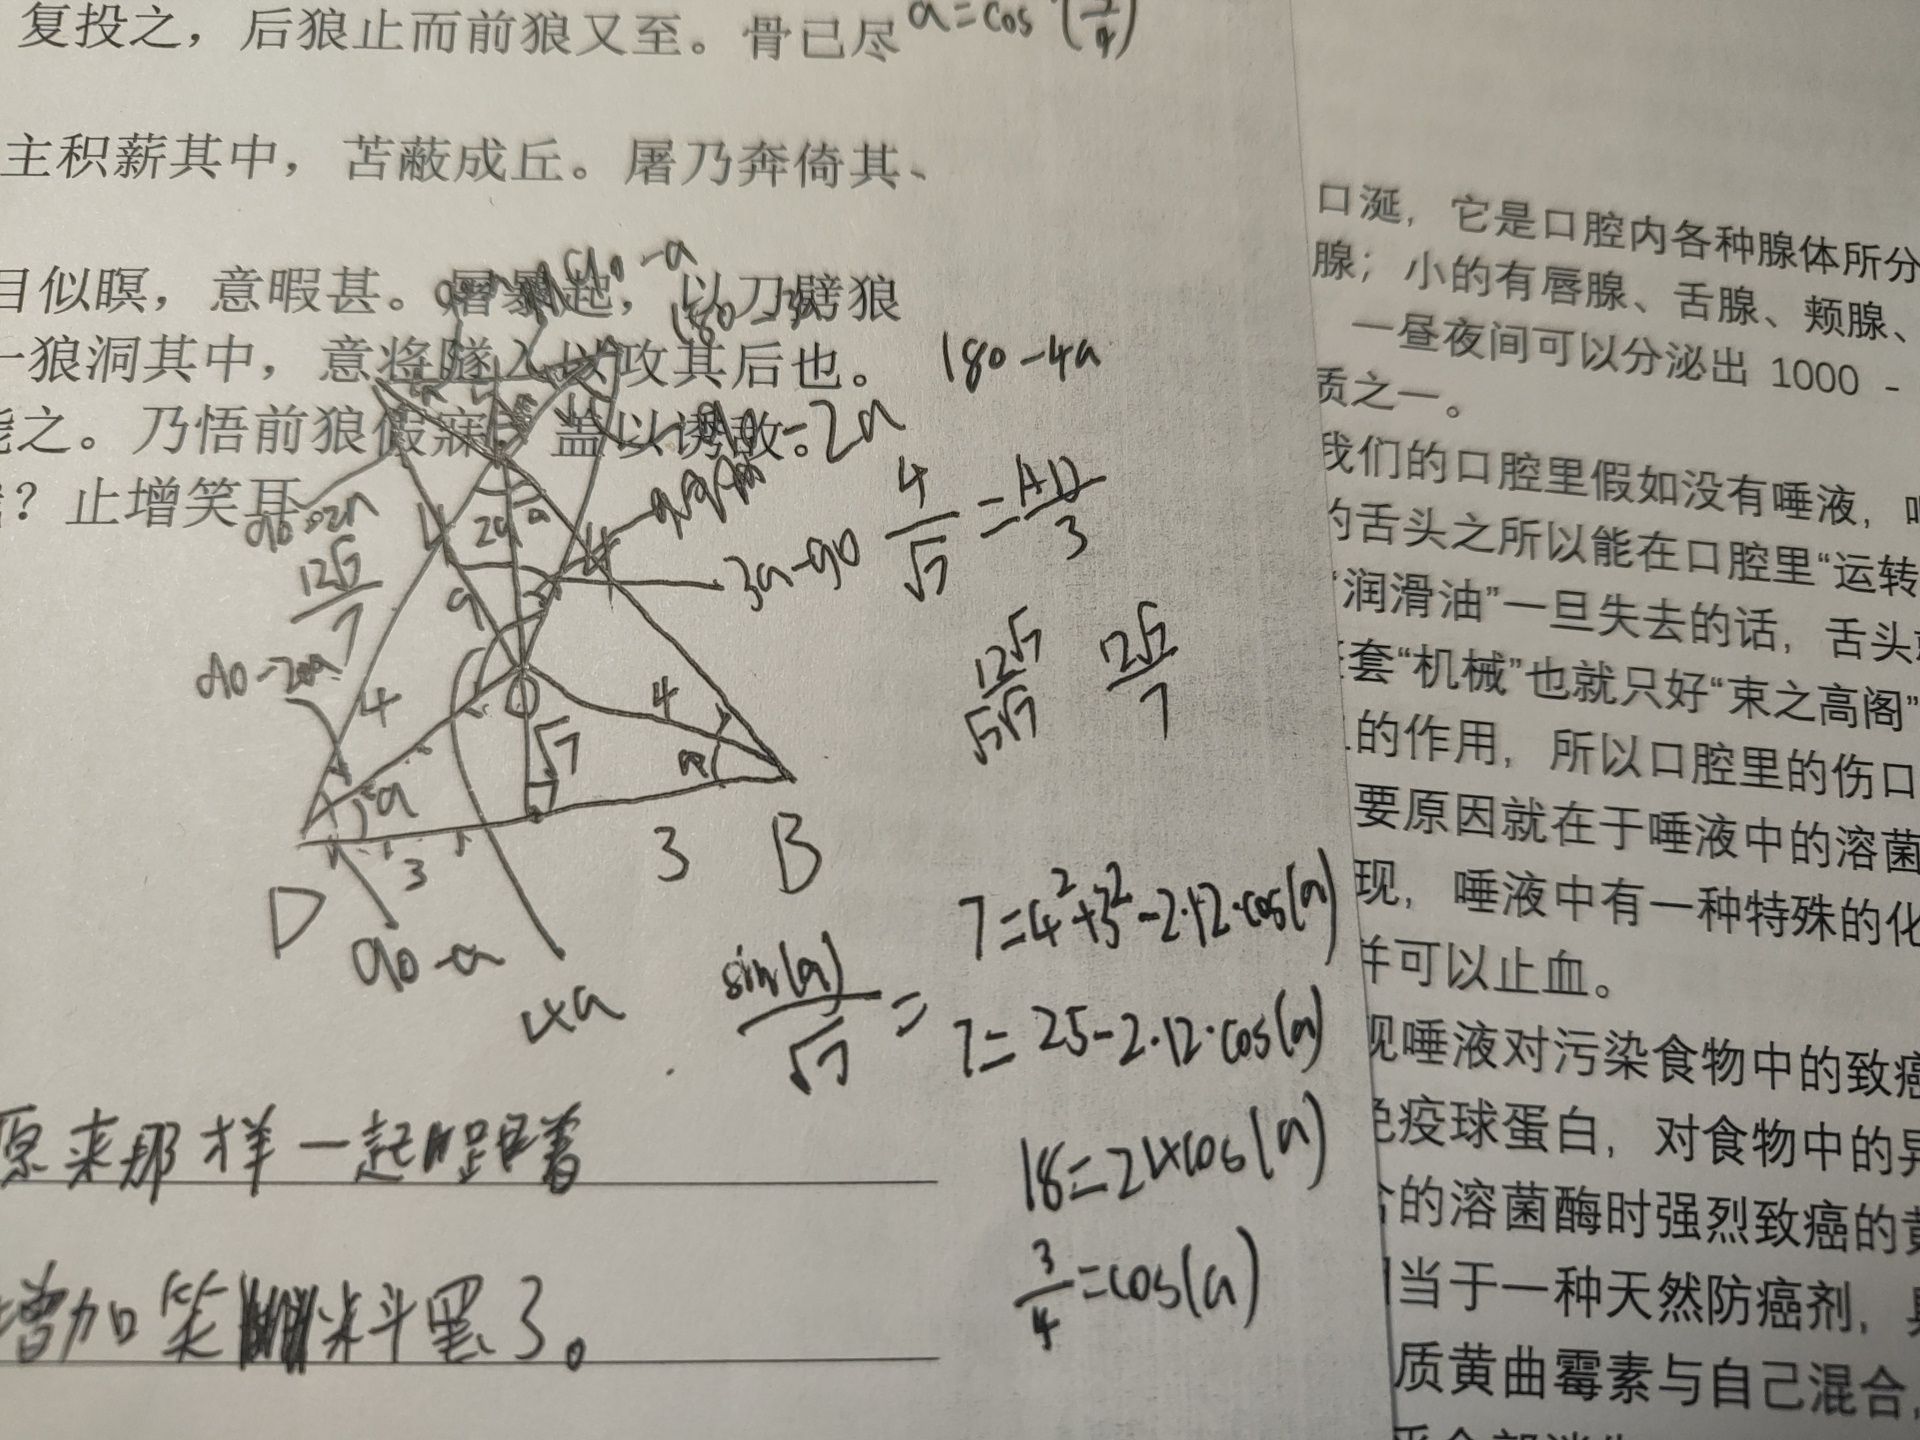 复投之，后狼止而前狼又至。骨已尽
a=cos
主积薪其中，苫蔽成丘。屠乃奔倚其、
目似瞑，意暇甚。屠暴起，以刀劈狼
一狼洞其中，意将隧入以攻其后也。
能之。乃悟前狼假寐，盖以诱敌。
？止增笑耳
90-a
180-4a
-2a
90-2a
2a
a
3a-90
4/√7=AD/3
12√7/7
12√7/√7√7
12√7/7
90-2a
4
O
4
√7
a
a
3
3
B
D
90-a
4a
sin(a)/√7=
7=4²+3²-2·12·cos(a)
7=25-2·12·cos(a)
18=24cos(a)
3/4=cos(a)
原来那样一起
增加笑料罢了。
口涎，它是口腔内各种腺体所分
腺；小的有唇腺、舌腺、颊腺、
一昼夜间可以分泌出 1000 -
质之一。
我们的口腔里假如没有唾液，
的舌头之所以能在口腔里“运转
“润滑油”一旦失去的话，舌头
套“机械”也就只好“束之高阁”
的作用，所以口腔里的伤口
要原因就在于唾液中的溶菌
现，唾液中有一种特殊的化
并可以止血。
现唾液对污染食物中的致癌
免疫球蛋白，对食物中的异
的溶菌酶时强烈致癌的黄
当于一种天然防癌剂，
质黄曲霉素与自己混合，